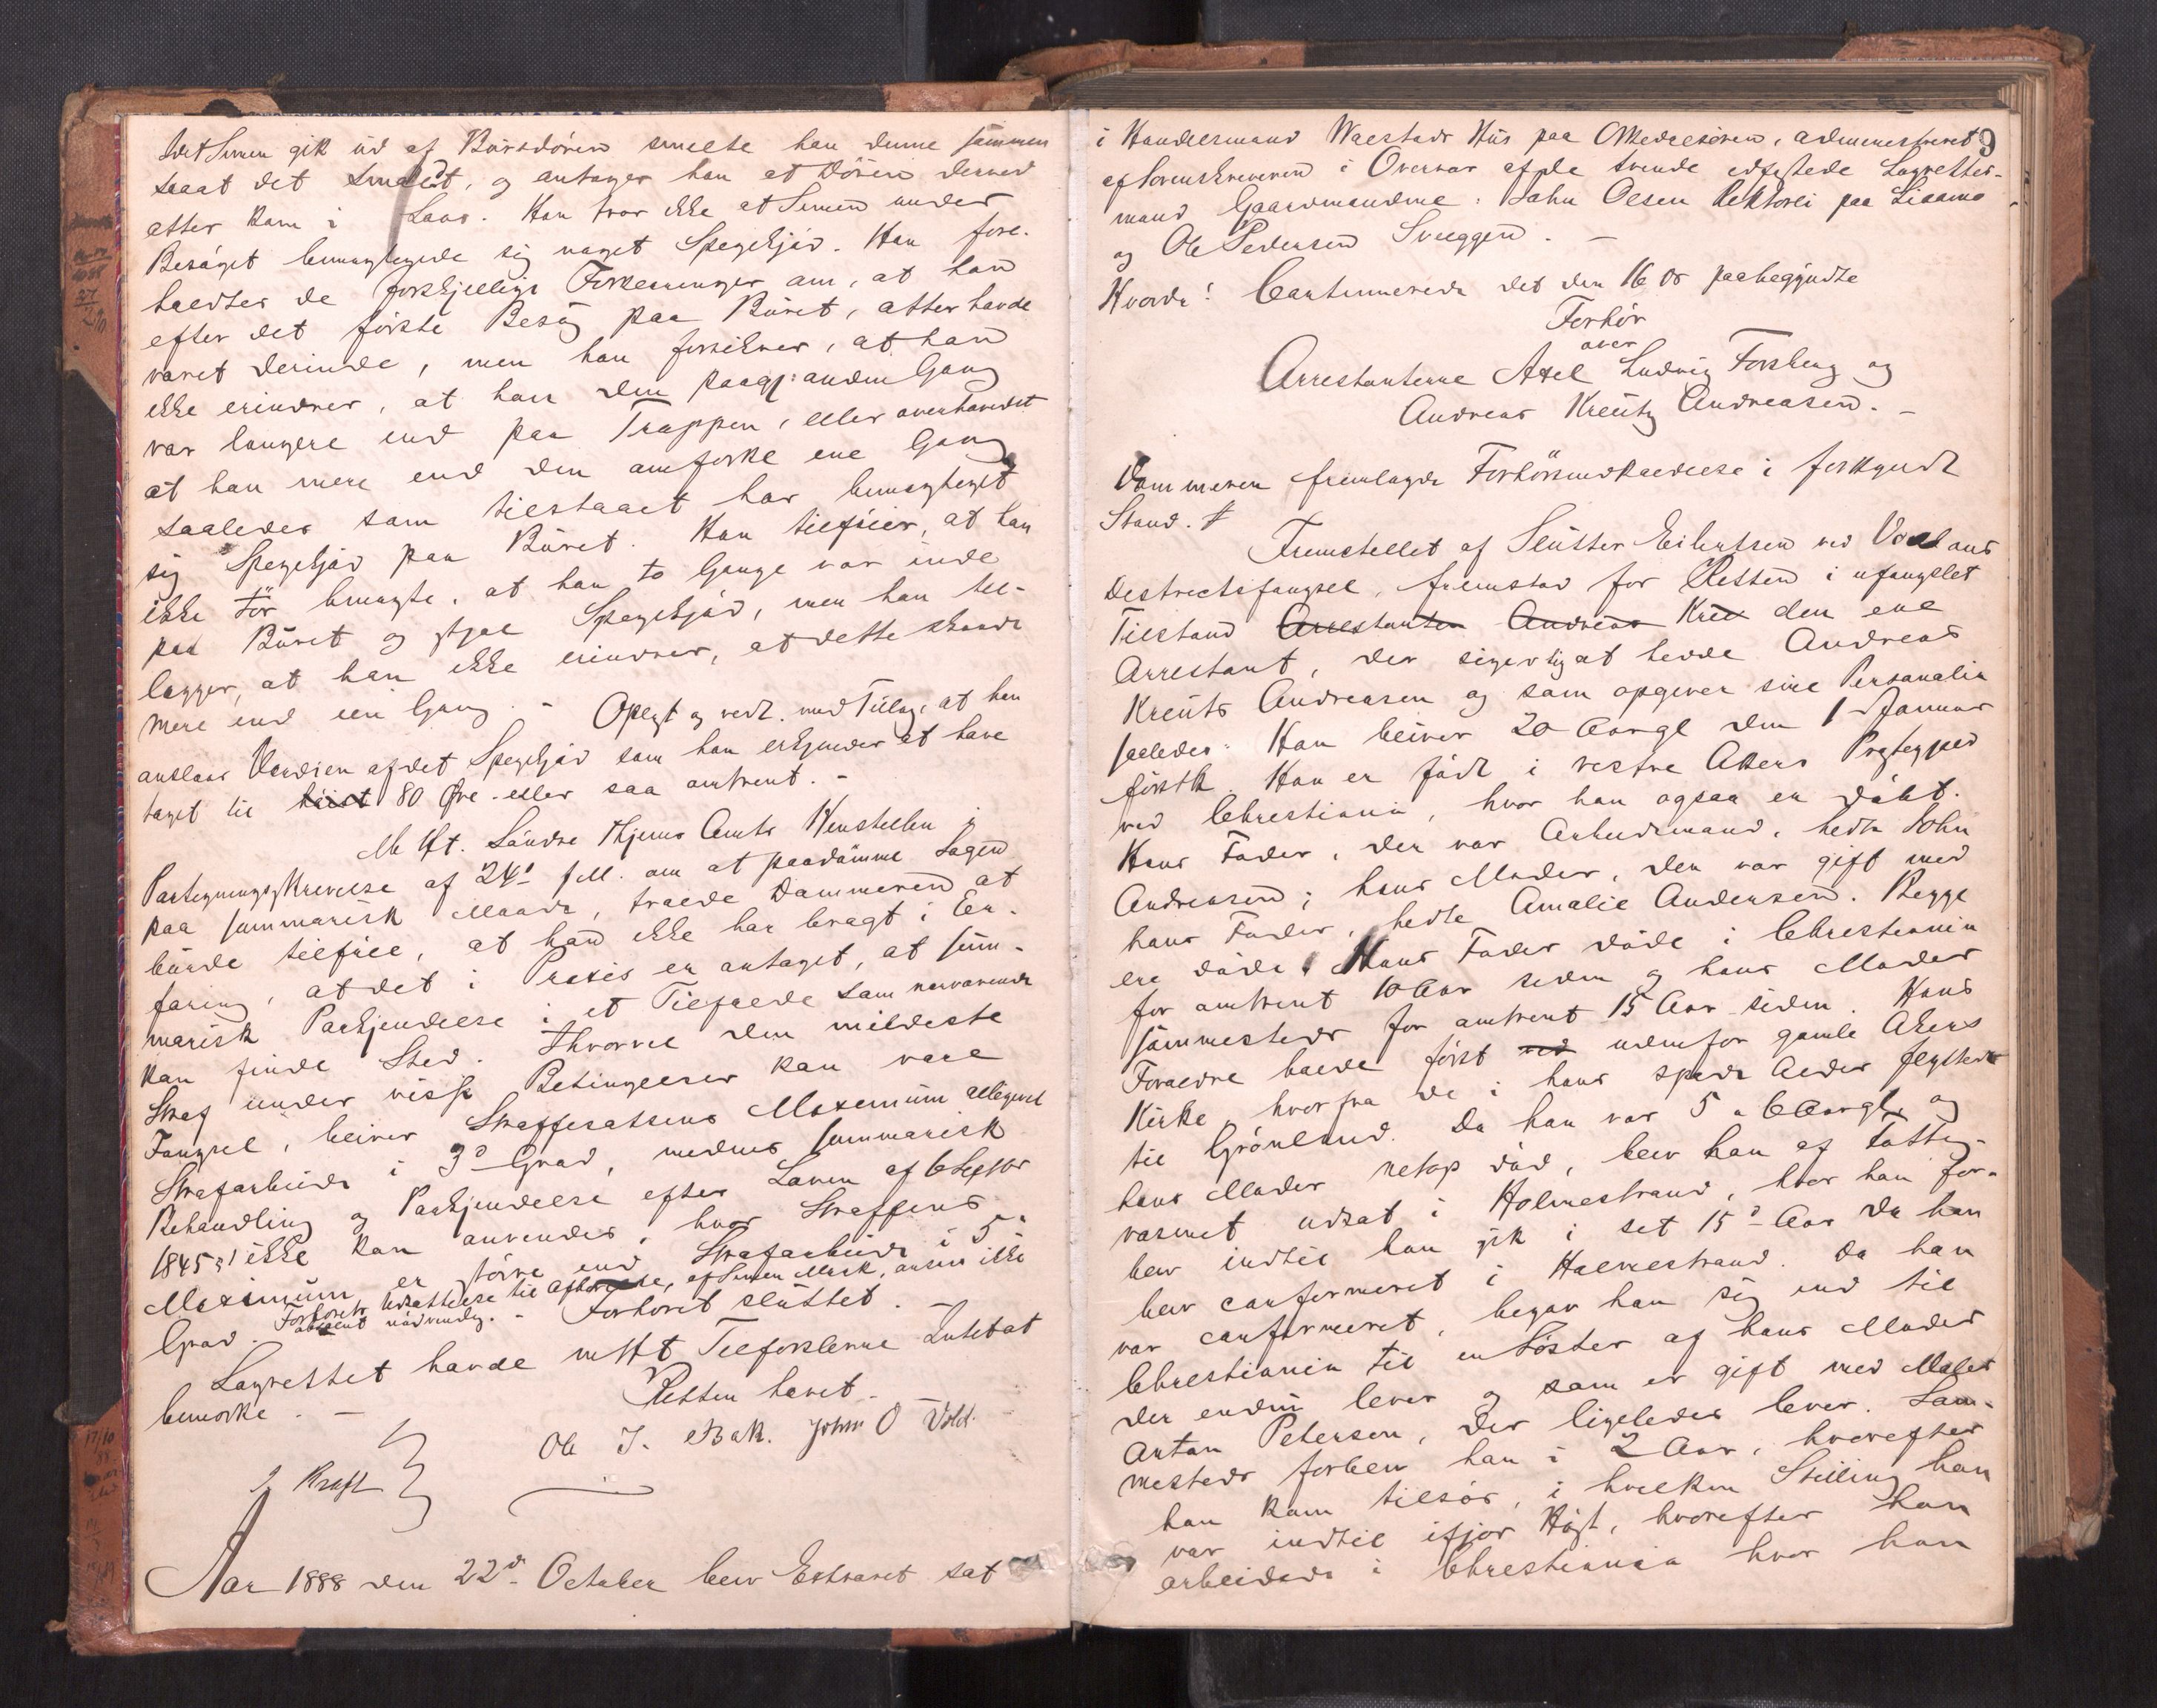 Idet Simen gik ud af Bursdören smelte han denne sammen
saaat det smaldt, og antager han at Dören derved
atter kom i Laas. Han tror ikke at Simen under
Besöget bemægtigede sig noget Spegekjöd. Han fore-
holdtes de forskjellige Forklaringer om, at han
efter det förste Besög paa Buret, atter havde
været derinde, men han forsikrer, at han
ikke erindrer, at han den paagj: anden Gang
var længere end paa Trappen, eller overhovedet
at han mere end den omforkl ene Gang
saaledes som tilstaaet har bemægtiget
sig Spegekjöd paa Buret. Han tilföier, at han
ikke tör benægte, at han to Gange var inde
paa Buret og stjal Spegekjöd, men han til-
lægger, at han ikke erindrer, at dette skeede
mere end een Gang. - Oplæst og vedt. med Tillæg, at han
anslaar Værdien af det Spegekjöd som han erkjender at have
taget til höist 80 Öre - eller saa omtrent. -
M. Ht. Söndre Thjems Amts Henstillen i
Paategningsskrivelse af 24d f.M. om at paadömme Sagen
paa summarisk Maade, troede Dommeren at
burde tilföie, at han ikke har bragt i Er-
faring, at det i Praxis er antaget, at sum-
marisk Paakjendelse i et Tilfælde som nærværende
kan finde Sted. Thvorvel den mildeste
Straf under visse Betingelser kan være
Fængsel, bliver Straffesatsens Maximum alligevel
Strafarbeide i 3d Grad, medens summarisk
Behandling og Paakjendelse efter Loven af 6 Septbr
1845 §1 ikke kan anvendes, hvor Straffens
Maximum er större end Strafarbeide i 5
Grad. Forhörets Udsættelse til Afhörelse af Simen Mærk, ansees ikke
absolut nödvendig. - Forhöret sluttet. -
Lagrettet havde mHt Tilförslerne Intet at
bemærke. - Retten hævet. -
J Kraft Ole J. Bak. John O Vold.
Aar 1888 den 22d October blev Extraret sat
9
i Handelsmand Wærstads Hus paa Orkedalsören, administreret
af Sorenskriveren i Overvær af de tvende edfæstede Lagrettes-
mænd Gaardmændene: John Olsen Rektorli paa Lisamo
og Ole Pedersen Sveeggen. -
Hvorda! Continuerede det den 16 ds paabegyndte
Forhör
over
Arrestanterne Axel Ludvig Forsberg og
Andreas Kreutz Andreasen. -
Dommeren fremlagde Forhörsindkaldelse i forkyndt
Stand. #
Fremstillet af Slutter Eilertsen ved Vollans
Districtsfængsel, fremstod for Retten i ufængslet
Tilstand Arrestanten Andreas Kreu den ene
Arrestant, der siger sig at hedde Andreas
Kreuts Andreasen og som opgiver sine Personalia
saaledes: Han bliver 20 Aargl den 1 Januar
förstk. Han er födt i vestre Akers Prstegjeld
ved Christiania, hvor han ogsaa er döbt.
Hans Fader, der var Arbeidsmand, hedte John
Andreasen; hans Moder, der var gift med
hans Fader, hedte Amalie Andersen. Begge
ere döde. Hans Fader döde i Christiania
for omtrent 10 Aar siden og hans Moder
sammesteds for omtrent 15 Aar siden. Hans
Forældre boede först ved udenfor gamle Akers
Kirke, hvorfra de i hans spæde Alder flyttede
til Grönland. Da han var 5 a 6 Aargl, og
hans Moder netop död, blev han af Fattig-
væsenet udsat i Holmestrand, hvor han for-
blev indtil han gik i sit 15d Aar da han
blev confirmeret i Holmestrand. Da han
var confirmeret, begav han sig ind til
Christiania til en Söster af hans Moder
der endnu lever og som er gift med Maler
Anton Petersen, der ligeledes lever. Sam-
mesteds forblev han i 2 Aar, hvorefter
han kom tilsös, i hvilken Stilling han
var indtil ifjor Höst, hvorefter han
arbeidede i Christiania hvor han